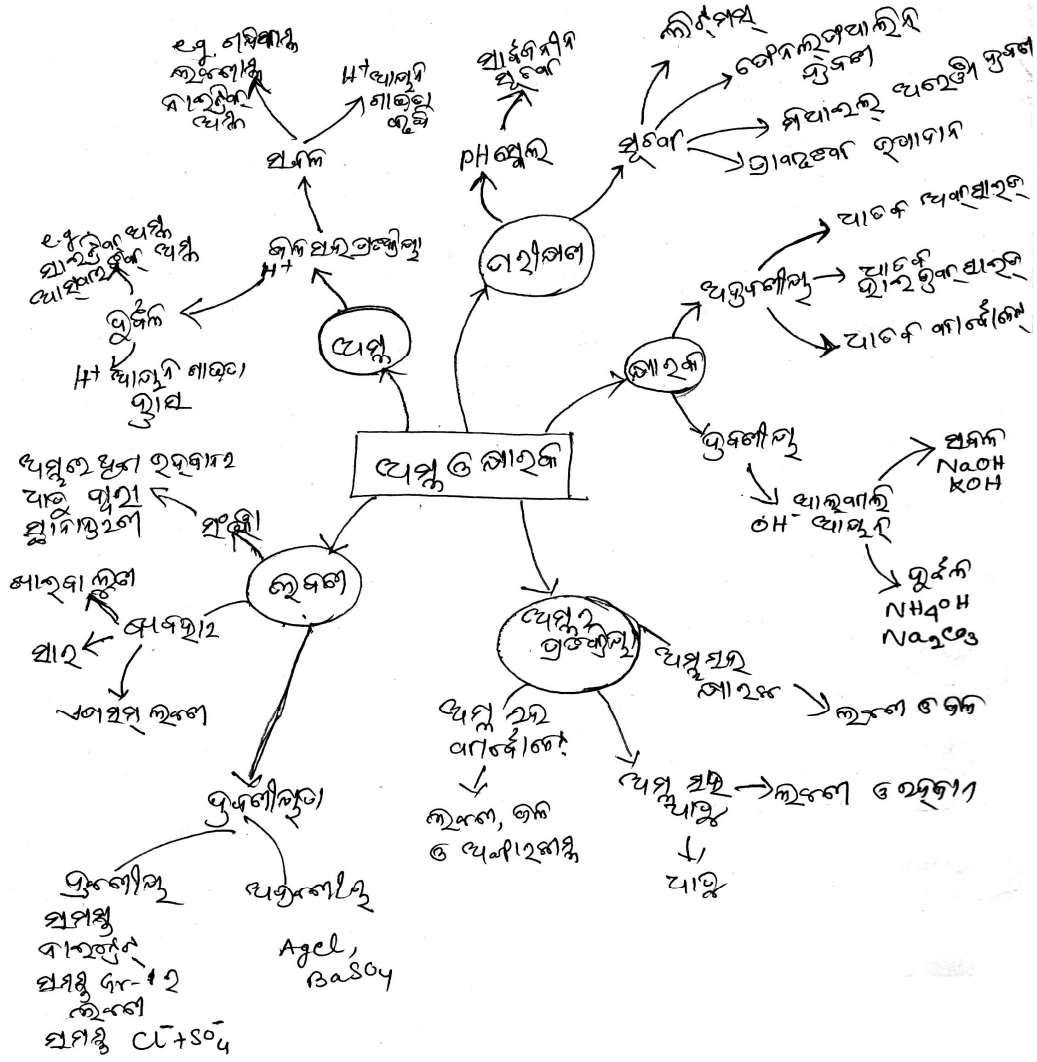 ଅମ୍ଳ ଓ କ୍ଷାରକ
ଅମ୍ଳ
ଜଳ ସହ ପ୍ରତିକ୍ରିୟା
H⁺
ସବଳ
H⁺ ଆୟନ
ଗାଢ଼ତା
ବୃଦ୍ଧି
ଲବଣାମ୍ଳ
ନାଇଟ୍ରିକ୍
ଅମ୍ଳ
ଦୁର୍ବଳ
H⁺ ଆୟନ ଗାଢ଼ତା
ହ୍ରାସ
ସାଇଟ୍ରିକ୍ ଅମ୍ଳ
ପରୀକ୍ଷଣ
pH ସ୍କେଲ
ସାର୍ବଜନୀନ
ସୂଚକ
ସୂଚକ
ଲିଟ୍‌ମସ୍
ଫେନଲ୍‌ଫ୍‌ଥାଲିନ୍
ଦ୍ରବଣ
ମିଥାଇଲ୍ ଅରେଞ୍ଜ ଦ୍ରବଣ
ଉପାଦାନ
କ୍ଷାରକ
ଅଦ୍ରବଣୀୟ
ଧାତବ ଅକ୍‌ସାଇଡ୍
ଧାତବ
ହାଇଡ୍ରକ୍‌ସାଇଡ୍
ଧାତବ କାର୍ବୋନେଟ୍
ଦ୍ରବଣୀୟ
ଆଲକାଲି
OH⁻ ଆୟନ୍
ସବଳ
NaOH
KOH
ଦୁର୍ବଳ
NH4OH
Na2CO3
ଅମ୍ଳର
ପ୍ରତିକ୍ରିୟା
ଅମ୍ଳ ସହ
କ୍ଷାରକ
ଲବଣ ଓ ଜଳ
ଅମ୍ଳ ସହ
ଧାତୁ
ଲବଣ ଓ ଉଦ୍‌ଜାନ
ଧାତୁ
ଅମ୍ଳ ସହ
କାର୍ବୋନେଟ୍
ଲବଣ, ଜଳ
ଓ ଅଙ୍ଗାରକାମ୍ଳ
ଲବଣ
ସଂଜ୍ଞା
ଅମ୍ଳରେ ଥିବା ଉଦ୍‌ଜାନର
ଧାତୁ ଦ୍ୱାରା
ସ୍ଥାନାନ୍ତରଣ
ବ୍ୟବହାର
ଖାଇବା ଲୁଣ
ସାର
ଏପସମ୍ ଲବଣ
ଦ୍ରବଣୀୟତା
ଦ୍ରବଣୀୟ
ସମସ୍ତ
ନାଇଟ୍ରେଟ୍
ସମସ୍ତ Gr-1 ର
ଲବଣ
ସମସ୍ତ Cl⁻+SO⁻4
ଅଦ୍ରବଣୀୟ
AgCl,
BaSO4